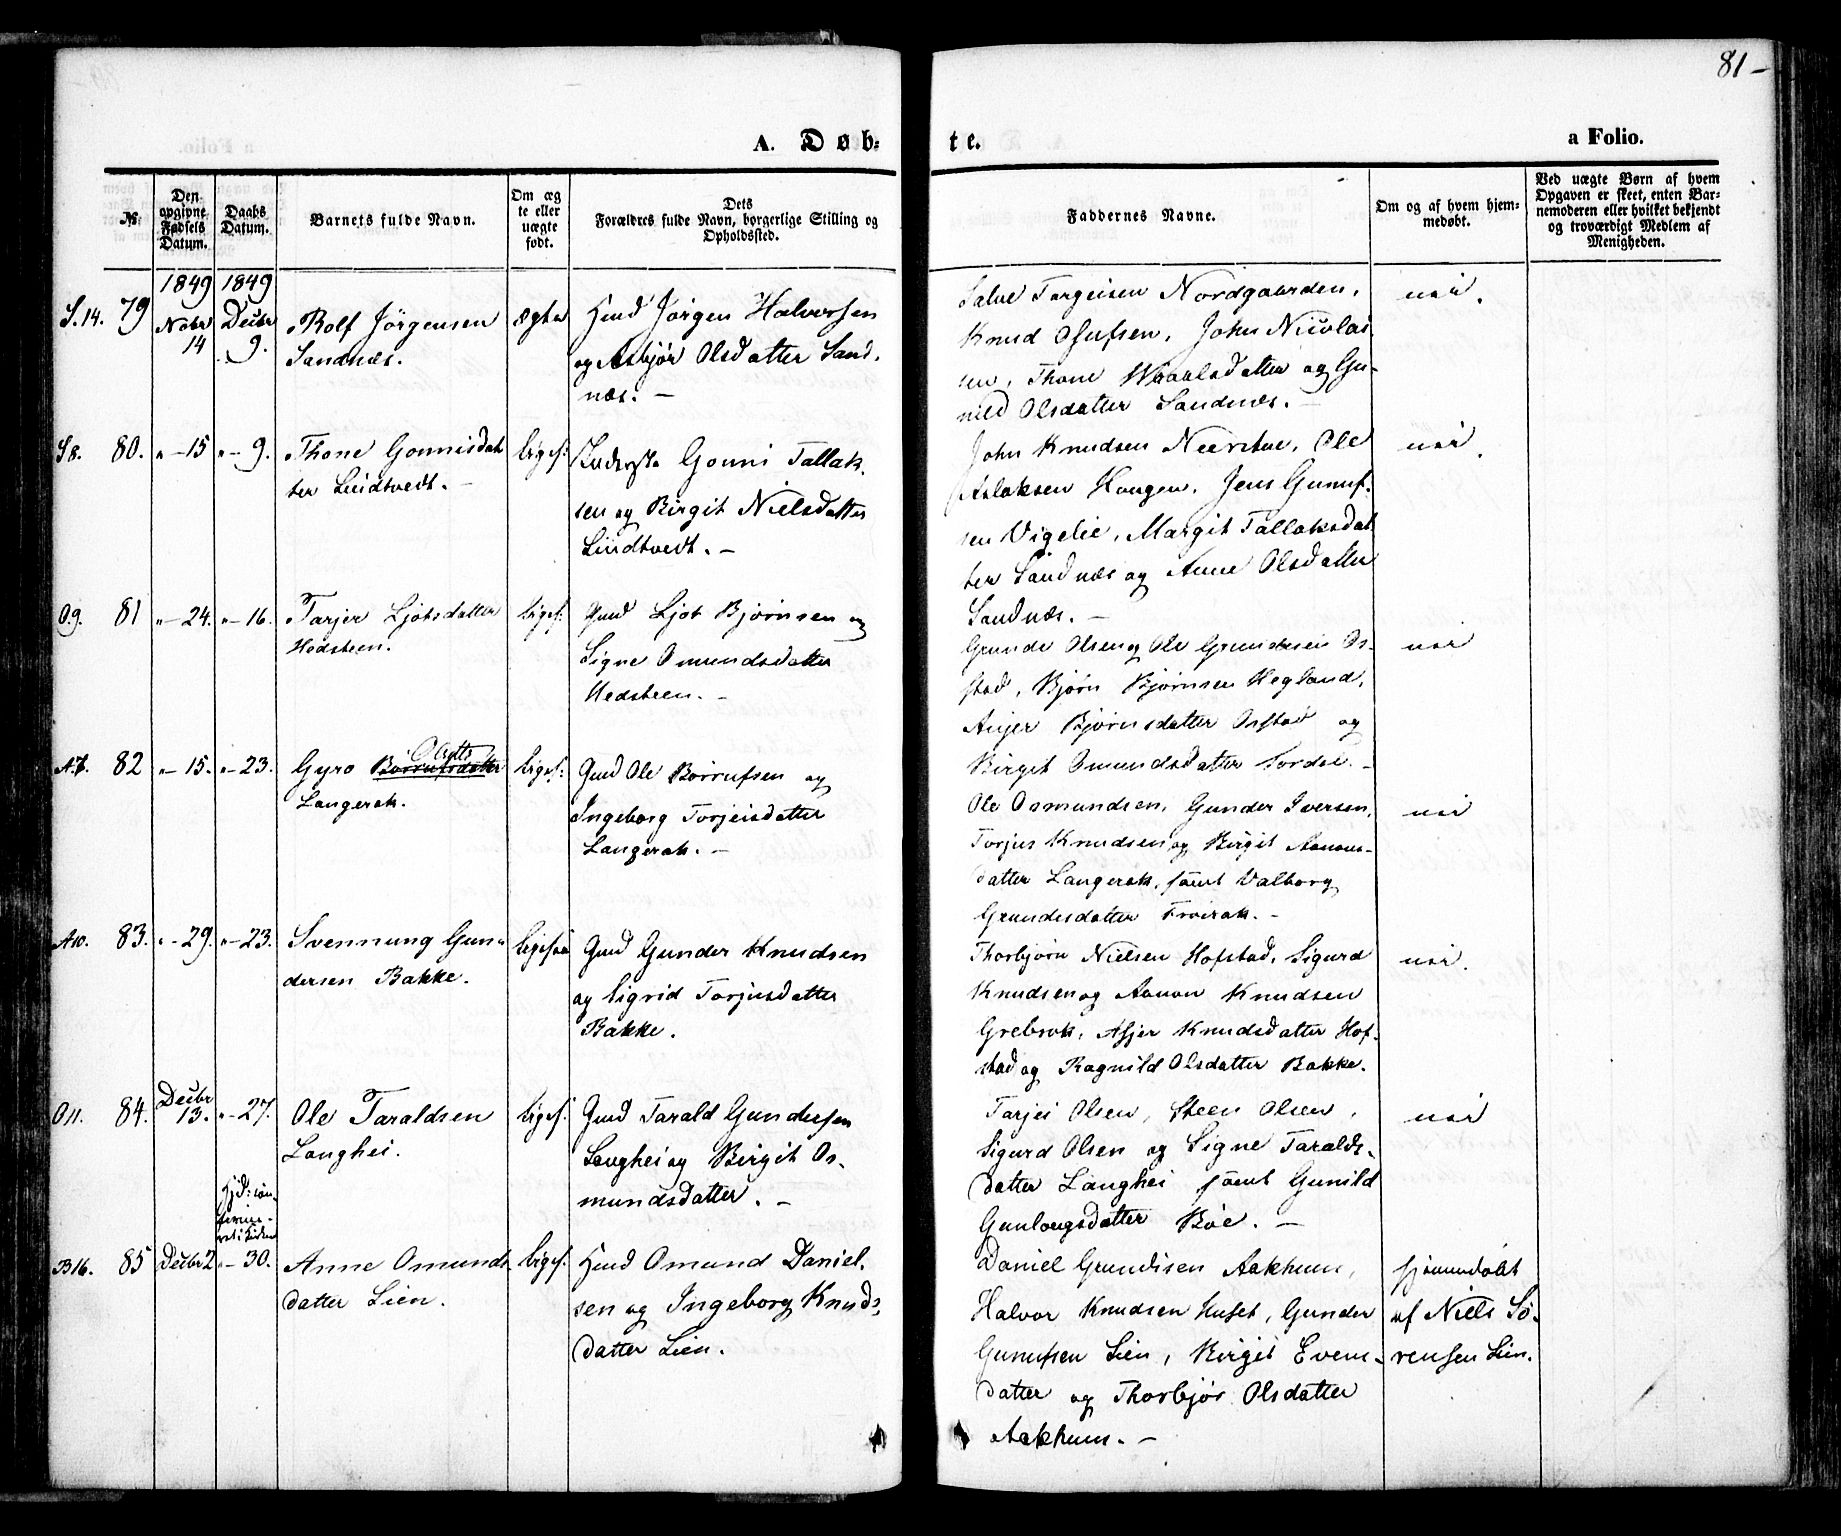 81-
A. Døb-
te.
a Folio.
No.
Den opgivne Fødsels Datum.
Daabs Datum.
Barnets fulde Navn.
Om ægte eller uægte født.
Dets Forældres fulde Navn, borgerlige Stilling og Opholdssted.
Faddernes Navne.
Om og af hvem hjemmedøbt.
Ved uægte Børn af hvem Opgaven er skeet, enten Barnemoderen eller hvilket bekjendt og troværdigt Medlem af Menigheden.
1849 1849
S.14. 79 Nobr 14 Decbr 9. Rolf Jörgensen
Sandnæs.
ægte
Jørgen Halvorsen
og Asbjør Olsdatter Sand-
næs. —
Salve Torgeisen Nordgaarden,
Knud John Nicolai
sen, Thone og Gu-
nild Olsdatter Sandnæs. —
S8. 80. „ — 15 „ — 9. Thone Gonnisdat
ter Lindtvedt. —
liges:
Gonni Tallak.
sen og Birgit Nielsdatter
Lindtvedt. —
John Knudsen Ole
Aslaksen Haugen, Jens Gunuf-
sen Vigelie, Margit Tallaksdat
ter Sandnæs og Anne Olsdatter
Sandnæs. —
O9. 81 „ — 24. „ — 16. Tarjer Ljotsdatter
Hodsteen.
ligesf:
Gmd Ljot Bjørnsen og
Signe Omundsdatter
Hodsteen. —
Grunde Olsen og Ole Grundesen Os-
stad, Bjørn Bjørnsen Hegland,
Anjer Bjørnsdatter Osstad og
Birgit Omundsdatter —
A7. 82 „ — 15. „ — 23. Gyro Borrufsdatter Olsdtr
Langerak.
ligesf:
Gmd Ole Borrufsen og
Ingeborg Torjeisdatter
Langerak. —
Ole Osmundsen, Gunder Iversen,
Torjus Knudsen og Birgit Aanons-
datter Langerak, samt Valborg
Grundesdatter Frøirak. —
A10. 83. „ — 29. „ — 23. Svennung Gun-
dersen Bakke.
ligesaa
Gmd Gunder Knudsen
og Sigrid Torjusdatter
Bakke.
Thorbjørn Nielsen Hofstad, Sigurd
Knudsen og Aanon Knudsen
Grebrok, Asjer Knudsdatter Hof-
stad og Ragnild Olsdatter Bakke.
O11. 84. Decbr 13. „ — 27. Ole Taraldsen
Langhei.
ligesf:
Gmd Tarald Gundersen
Langhei og Birgit Os-
mundsdatter. —
Tarjei Olsen, Steen Olsen,
Sigurd Olsen og Signe Taralds-
datter Langhei samt Gunild
Gunlougsdatter Bøe. —
B16. 85 Decbr 2 „ — 30. Anne Omunds
datter Lien.
ligesf:
Omund Daniel-
sen og Ingeborg Knuds-
datter Lien.
Daniel Grundesen Aakhum,
Halvor Knudsen Huset, Gunder
Gunufsen Lien, Birgit Evens-
datter og Thorbjør Olsdatter
Aakhum. —
hjemmedøbt
af Niels Sö-
rensen Lien.